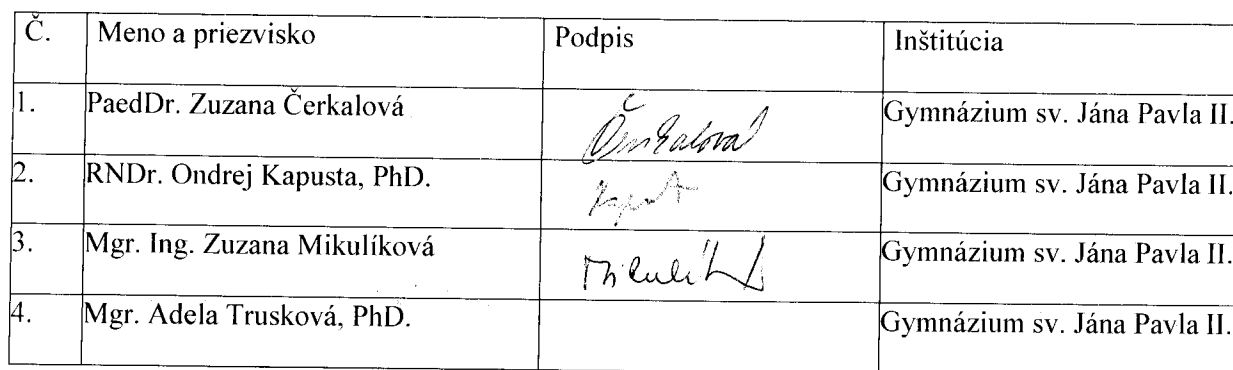 Č. Meno a priezvisko Podpis Inštitúcia
1. PaedDr. Zuzana Čerkalová Čerkalová Gymnázium sv. Jána Pavla II.
2. RNDr. Ondrej Kapusta, PhD. Gymnázium sv. Jána Pavla II.
3. Mgr. Ing. Zuzana Mikulíková Gymnázium sv. Jána Pavla II.
4. Mgr. Adela Trusková, PhD. Gymnázium sv. Jána Pavla II.